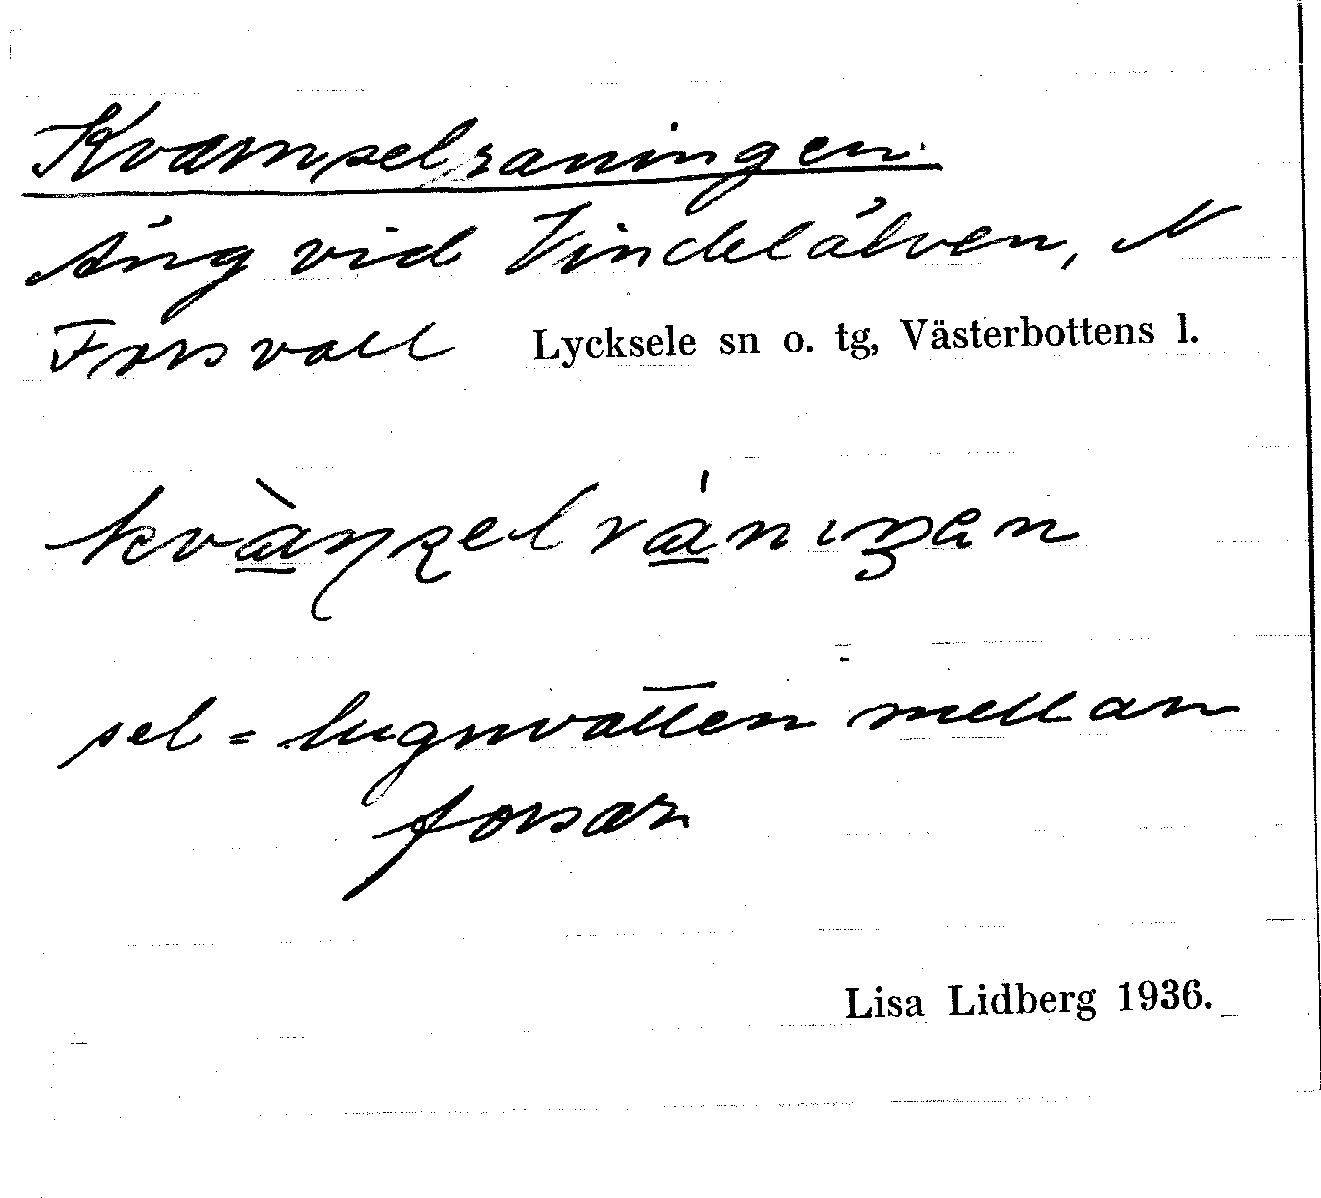 Kvarnselraningen.
Äng vid Vindelälven, N
Forsvall Lycksele sn o. tg, Västerbottens l.
sel = lugnvatten mellan
forsar
Lisa Lidberg 1936.